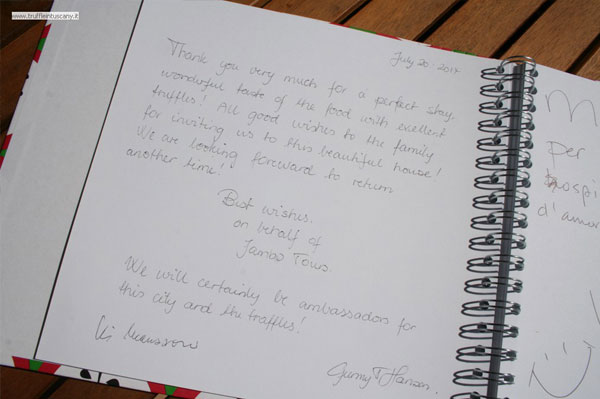 www.truffleintuscany.it
July 20 - 2017
Thank you very much for a perfect stay,
wonderful taste of the food with excellent
truffles! All good wishes to the family
for inviting us to this beautiful house!
We are looking foreward to return
another time!
Best wishes.
on behalf of
Jambo Tours.
We will certainly be ambassadors for
this city and the truffles!
Hansen.
per
d'amor